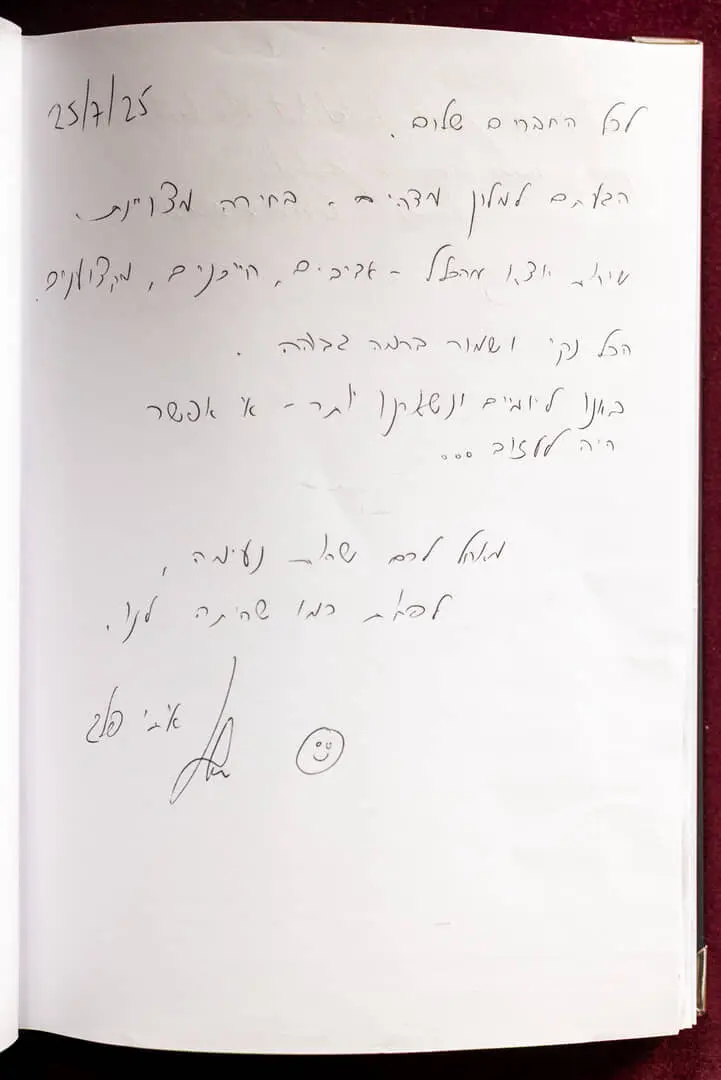 25/7/25
לכל החברים שלום.
הגעתם למלון מדהים - בחירה מצויינת.
שירות יוצא מהכלל - אדיבים, חייכנים, מקצועניים.
הכל נקי ושמור ברמה גבוהה.
באנו ליומיים ונשארנו יותר - אי אפשר
היה לעזוב ...
מאחל לכם שהות נעימה,
לפחות כמו שהיתה לנו.
פלג